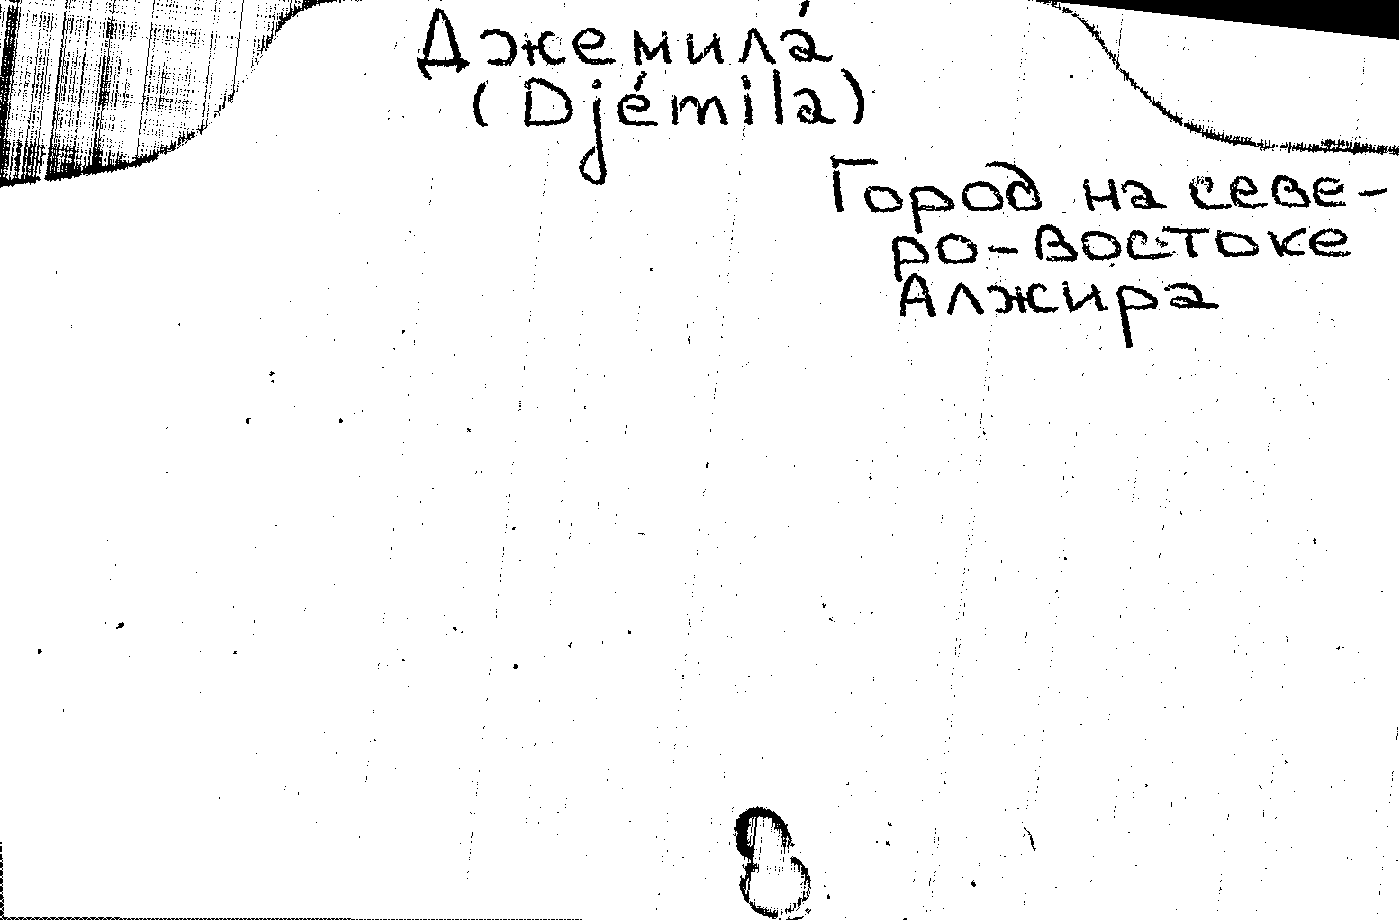 Джемила́
(Djémila)
Город на севе-
ро-востоке
Алжира